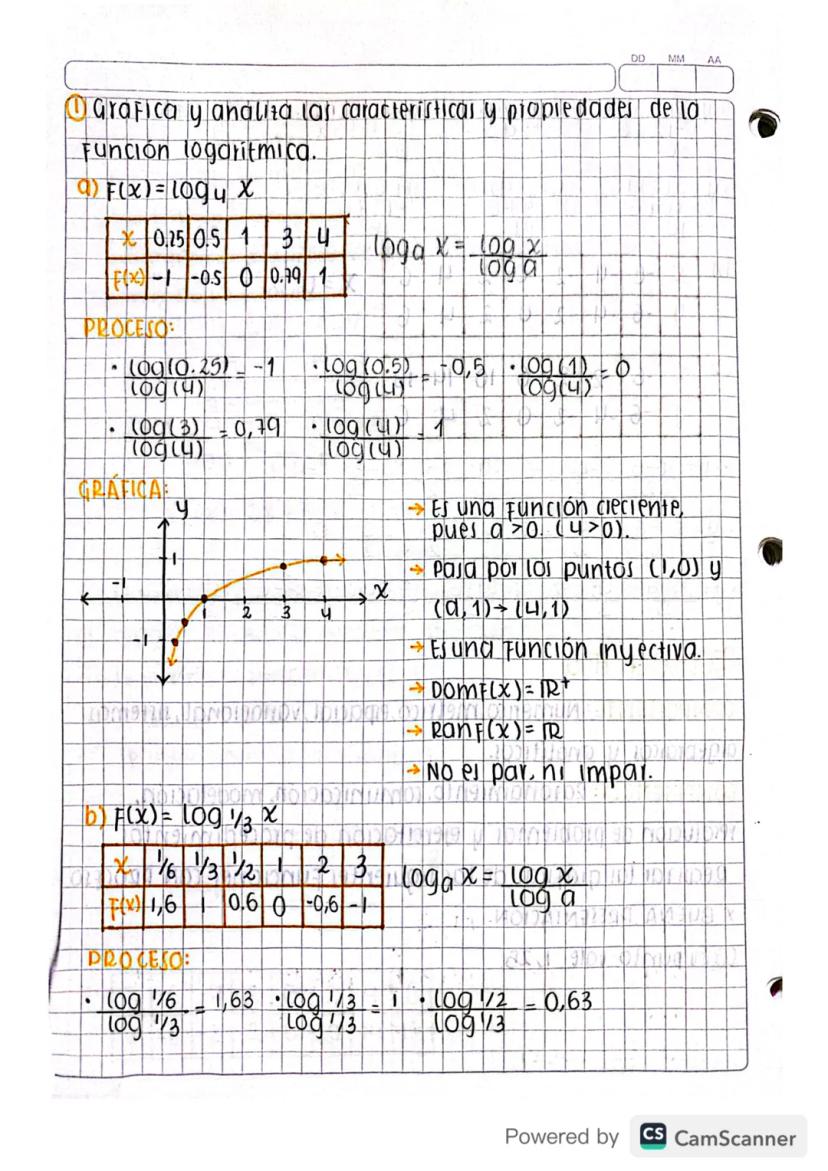 DD MM AA
① Gráfica y analiza las características y propiedades de la
Función logarítmica.
a) F(x) = log₄ x
x 0.25 0.5 1 3 4
F(x) -1 -0.5 0 0.79 1
logₐ x = log x / log a
PROCESO:
· log(0.25) / log(4) = -1 · log(0.5) / log(4) = -0,5 · log(1) / log(4) = 0
· log(3) / log(4) = 0,79 · log(4) / log(4) = 1
GRÁFICA:
y
1
-1 1 2 3 4 x
-1
→ Es una Función creciente,
pues a > 0. (4 > 0).
→ Pasa por los puntos (1,0) y
(a, 1) → (4, 1)
→ Es una Función inyectiva.
→ Dom F(x) = ℝ⁺
→ Ran F(x) = ℝ
→ No es par, ni impar.
b) F(x) = log 1/3 x
x 1/6 1/3 1/2 1 2 3
F(x) 1,6 1 0.6 0 -0,6 -1
logₐ x = log x / log a
PROCESO:
· log 1/6 / log 1/3 = 1,63 · log 1/3 / log 1/3 = 1 · log 1/2 / log 1/3 = 0,63
Powered by CS CamScanner